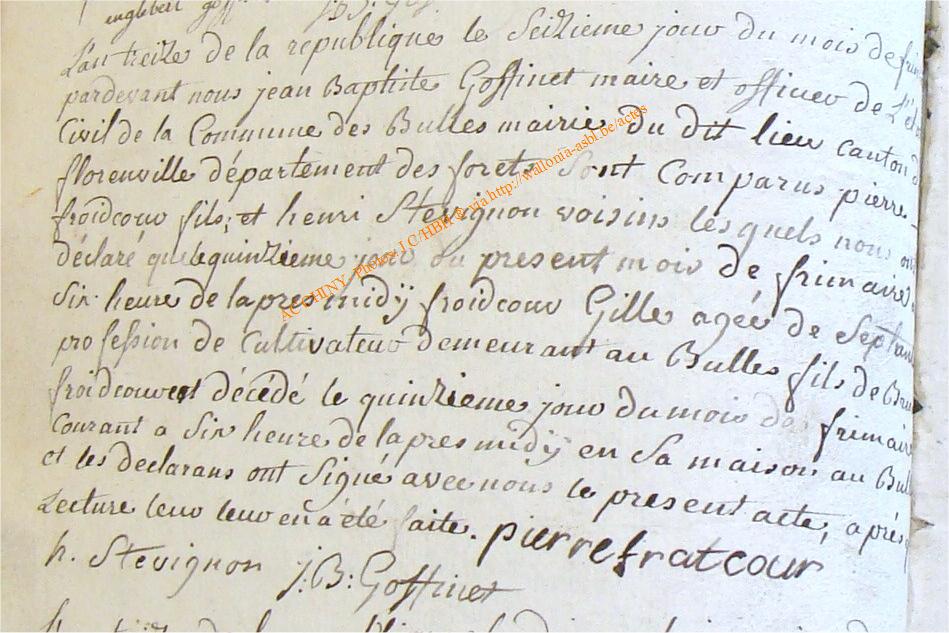 englebert goff
J:B: Goff
L'an treize de la république le Seizieme jour du mois de frim
pardevant nous jean Baptiste Goffinet maire et officier de L'et
Civil de la Commune des Bulles mairie du dit lieu canton d
florenville département des forets Sont Comparus pierre
froidcour fils, et henri Stevignon voisins lesquels nous ont
déclaré que le quinzieme jour du present mois de frimaire
Six heure de lapres midÿ froidcour Gille agée de Septan
profession de Cultivateur demeurant au Bulles fils de Bru
froidcour est décédé le quinzieme jour du mois de frimair
Courant a Six heure de lapres midÿ en Sa maison au Bull
et les declarans ont Signé avec nous le present acte, aprés q
Lecture leur leur en a été faite. pierre fratcour
h. Stevignon J:B: Goffinet
AC CHINY - Photos J C/HBH & via http://wallonia-asbl.be/actes